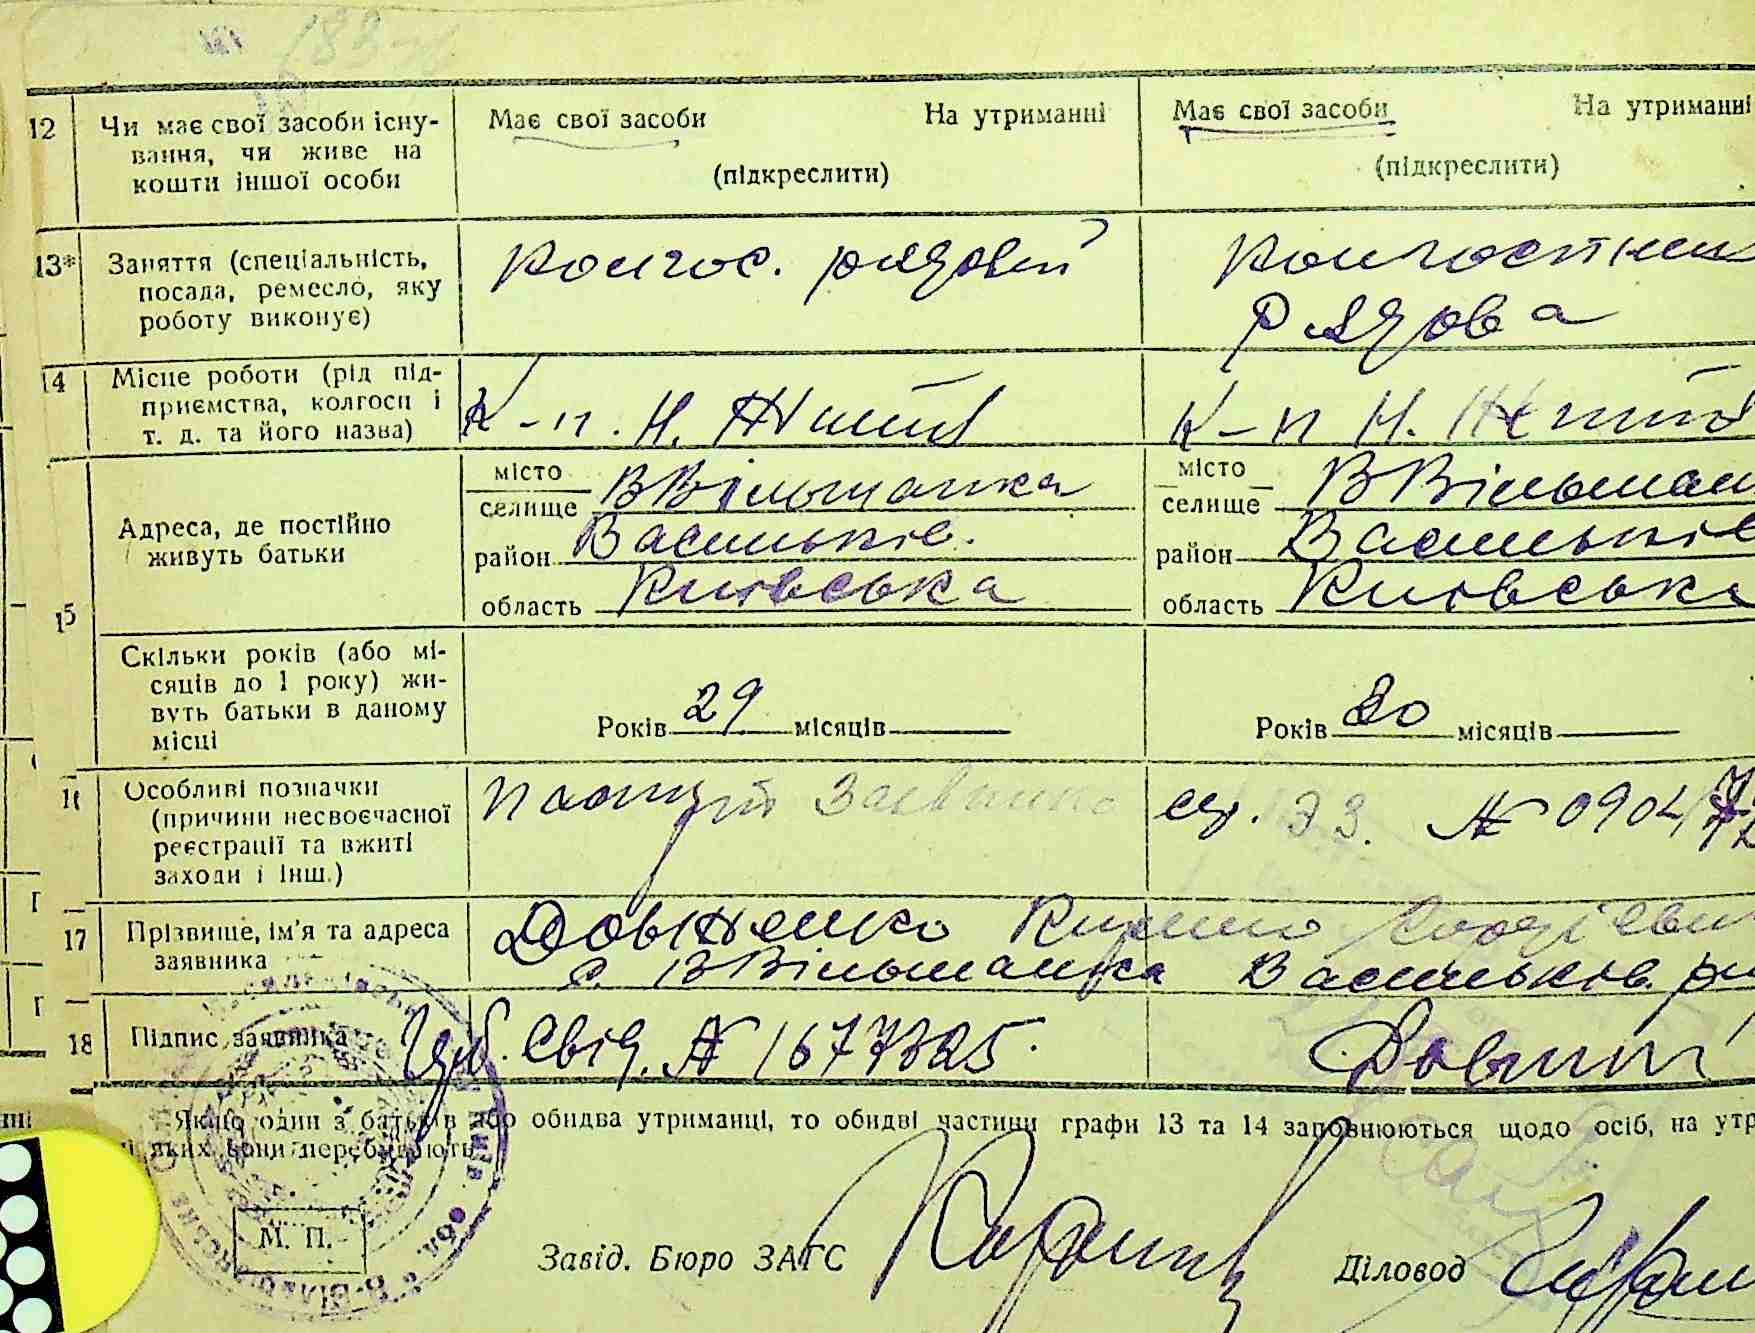 12 Чи має свої засоби існу-
вання, чи живе на
кошти іншої особи
Має свої засоби На утриманні
(підкреслити)
Має свої засоби На утриманні
(підкреслити)
13* Заняття (спеціальність,
посада, ремесло, яку
роботу виконує)
Колгос. рядовий
Колгоспниц
Рядова
14 Місце роботи (рід під-
приємства, колгосп і
т. д. та його назва)
К-п. Н. Життя
К-п Н. Життя
15 Адреса, де постійно
живуть батьки
місто
селище ВВільшанка
район Васильків.
область Київська
місто
селище ВВільшан
район Васильків
область Київська
Скільки років (або мі-
сяців до 1 року) жи-
вуть батьки в даному
місці
Років 29 місяців
Років 20 місяців
16 Особливі позначки
(причини несвоєчасної
реєстрації та вжиті
заходи і інш.)
сер. ЭЗ. №
17 Прізвище, ім'я та адреса
заявника
Довженко Кирило Сергієви
с. ВВільшанка Васильків. р
18 Підпис заявника
свід. № 1677325.
Якщо один з батьків або обидва утриманці, то обидві частини графи 13 та 14 заповнюються щодо осіб, на утр
яких вони перебувають
М. П.
Завід. Бюро ЗАГС
Діловод